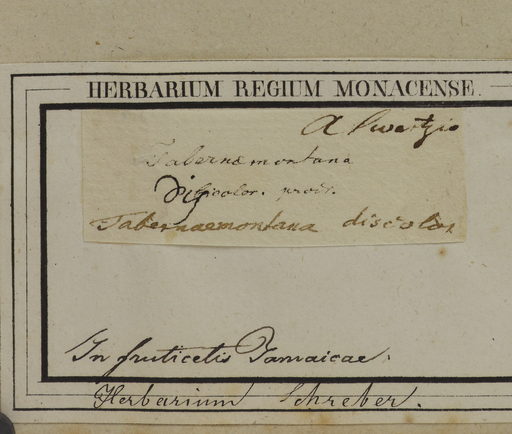 HERBARIUM REGIUM MONACENSE.
A Swartzio
Tabernæmontana
discolor. prodr.
Tabernaemontana discolor
In fruticetis Jamaicae.
Herbarium Schreber.